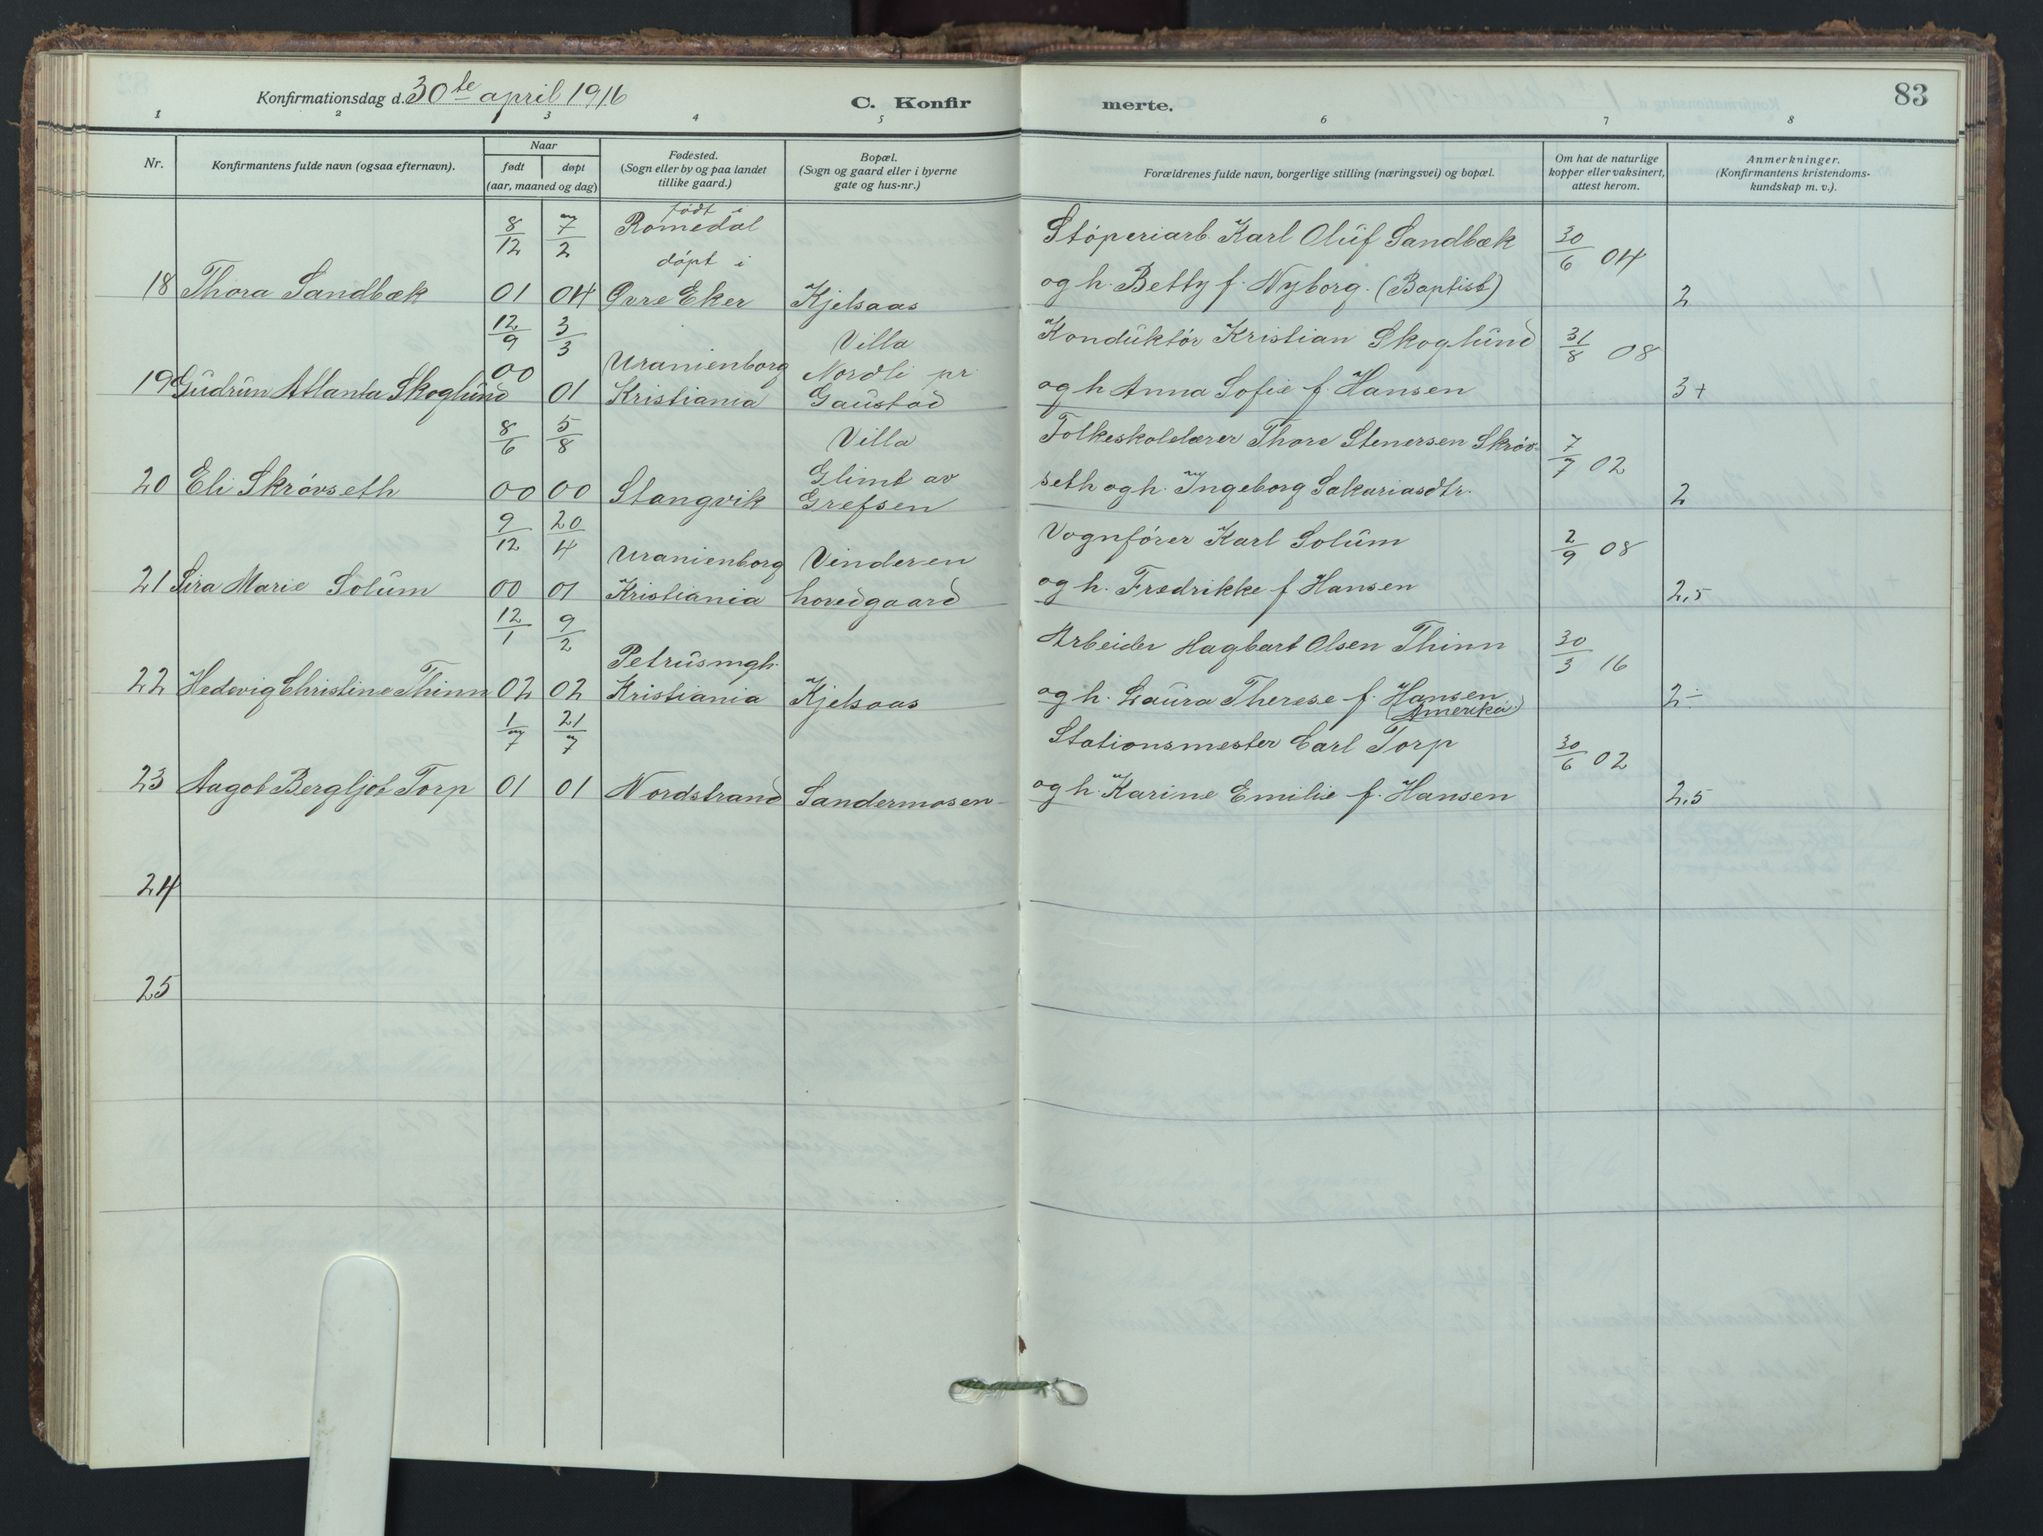 Konfirmationsdag d. 30te april 1916
C. Konfir
merte.
83
1 2 3 4 5 6 7 8
Nr.
Konfirmantens fulde navn (ogsaa efternavn).
Naar
født døpt
(aar, maaned og dag)
Fødested.
(Sogn eller by og paa landet
tillike gaard.)
Bopæl.
(Sogn og gaard eller i byerne
gate og hus-nr.)
Forældrenes fulde navn, borgerlige stilling (næringsvei) og bopæl.
Om hat de naturlige
kopper eller vaksinert,
attest herom.
Anmerkninger.
(Konfirmantens kristendoms-
kundskap m. v.).
født i
8/12 7/2 Romedal Støperiarb. Karl Oluf Sandbæk 30/6 04
døpt i
18 Thora Sandbæk 01 04 Øvre Eker Kjelsaas og h. Betty f. Nyborg. (Baptist) 2
12/9 3/3 Villa Konduktør Kristian Skoglund 31/8 08
00 Uranienborg Nordli pr.
19 Gudrun Atlanta Skoglund 01 Kristiania Gaustad og h Anna Sofie f. Hansen 3+
8/6 5/8 Villa Folkeskolelærer Thore Stenersen Skrøv- 7/7 02
Glimt av
20 Eli Skrøvseth 00 00 Stangvik Grefsen seth og h. Ingeborg Sakariasdtr. 2
9/12 20/4 Uranienborg Vinderen Vognfører Karl Solum 2/9 08
21 Sira Marie Solum 00 01 Kristiania hovedgaard og h. Fredrikke f. Hansen 2,5
12/1 9/2 Petrusmgh. Arbeider Hagbart Olsen Thinn 30/3 16
22 Hedevig Christine Thinn 02 02 Kristiania Kjelsaas og h. Laura Therese f. Hansen 2÷
(Amerika)
1/7 21/7 Stationsmester Carl Torp 30/6 02
23 Aagot Bergljot Torp 01 01 Nordstrand Sandermosen og h. Karine Emilie f. Hansen 2,5
24
25